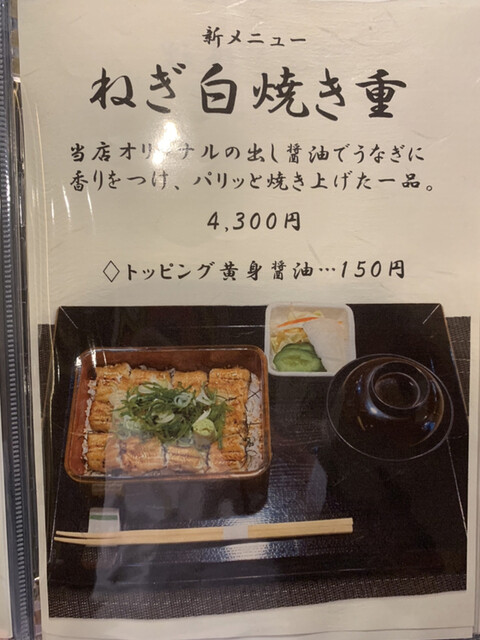 新メニュー
ねぎ白焼き重
当店オリジナルの出し醤油でうなぎに
香りをつけ、パリッと焼き上げた一品。
4,300円
◇トッピング黄身醤油…150円